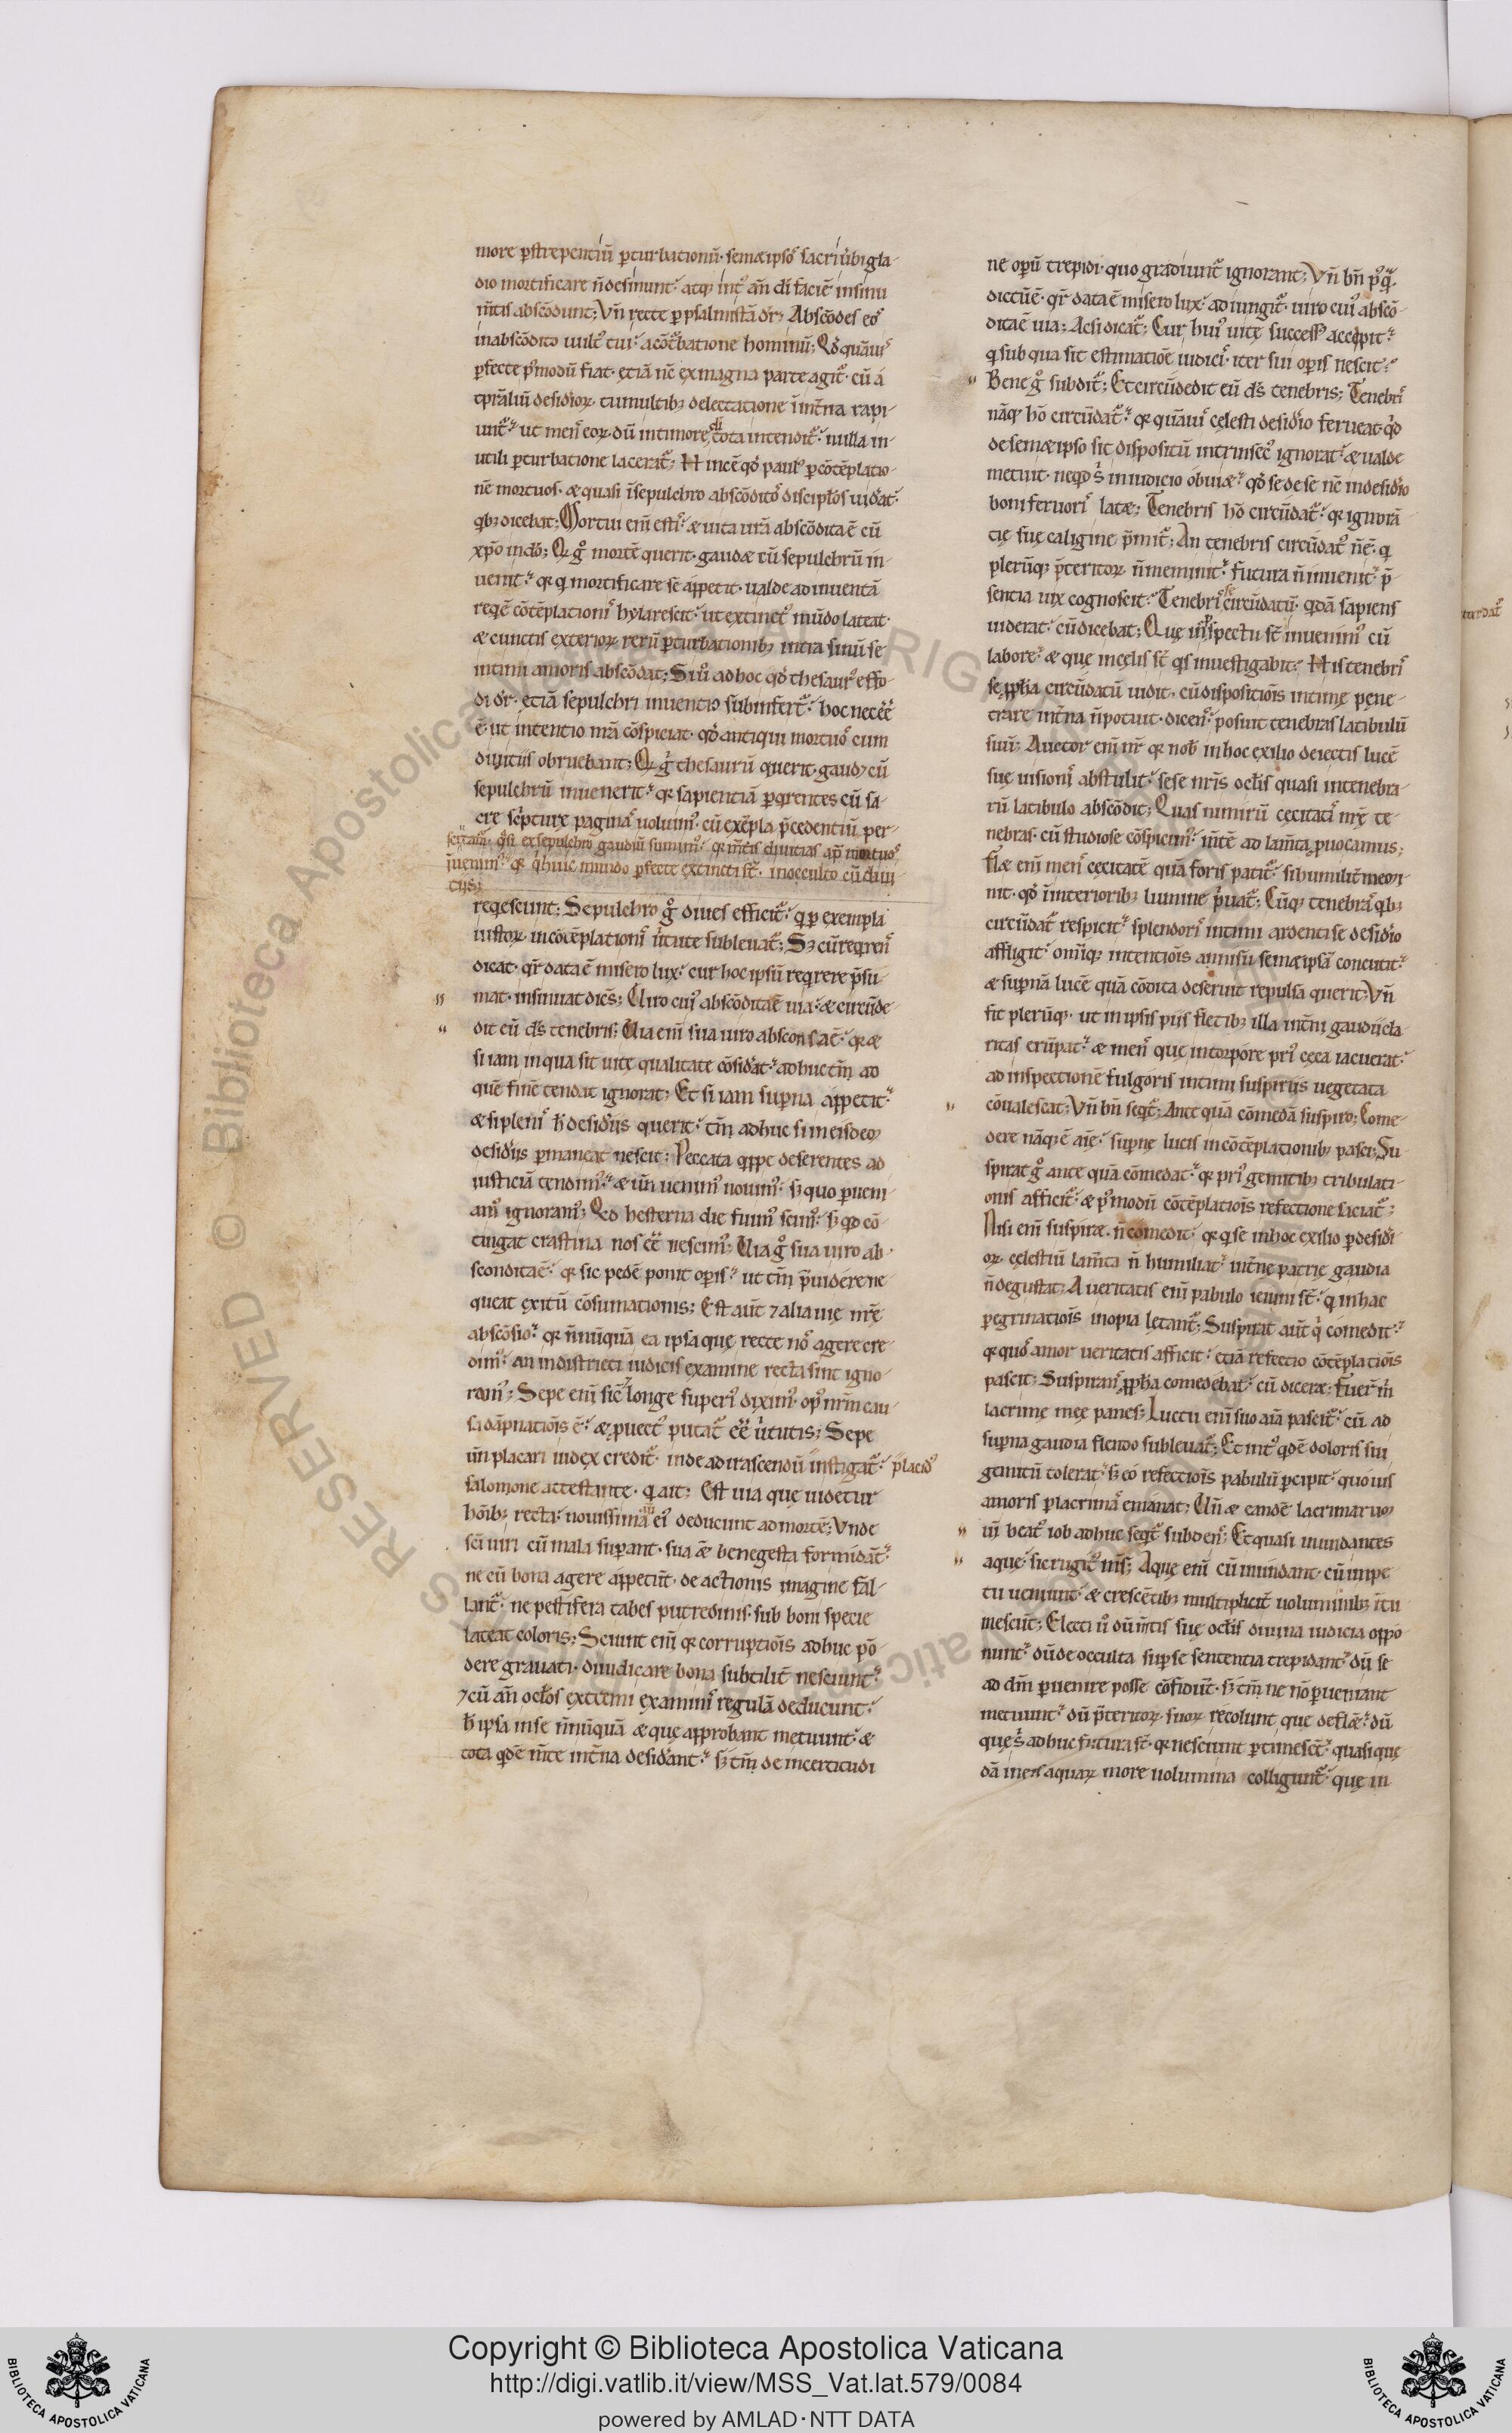 more p̄strepentiū p̄turbationū· semæipsoˢ sacri ūbi gla-
dio mortificare n̄ desinunt· atq; int͛ an̄ dī faciē in sinu
m̄tis abscōdunt; Vn̄ recte p̄ psalmistā dr̄; Abscōdes eoˢ
in abscōdito uult͛ tui· a cōt͛batione hominū; Qđ quāuiˢ
p̄fecte p͛modū fiat· etiā nc̄ ex magna parte agit͛· cū á
tp̄raliū desidioꝝ tumultib; delectatione īnt͛na rapi-
unt͛· ut menˢ eoꝝ dū in timore di tota intendit͛· nulla in-
utili p̄turbatione lacerat͛; Hinc ē qđ paulˢ p̄ cōtēplatio-
nē mortuos· æ quasi ī sepulchro abscōditoˢ discipl̄os uid͛at·
q¹b; dicebat; Mortui eni estiˢ· æ uita urā abscōdita ē cū
xp̄o in do; Qi g͛ mortē querit· gaudæ cū sepulchrū in-
uenit· qr qi mortificare se appetit· ualde ad inuentā
reqē cōtēplationiˢ hylarescit· ut extinctˢ mūdo lateat·
æ cunctis exterioꝝ rerū p̄turbationib; intra sinū se
intimi amoris abscōdat; Si ū ad hoc qđ thesaurˢ effo-
di dr̄· etiā sepulchri inuentio subinfert͛· hoc necēē
ē· ut intentio nr̄a cōspiciat· qđ antiqui mortuoˢ cum
diuitiis obruebant; Qi g͛ thesaurū querit· gaud& cū
sepulchrū inuenerit· qr sapientiā p̄q¹rentes cū sa-
cre sc̄pture paginaˢ uoluimˢ· cū exēpla p̄cedentiū per-
scrutam̄· q͛si ex sepulchro gaudiū sumimˢ· qr m̄tis diuitias ap̄ mortuoˢ
īuenimˢ· qr q¹ huic mundo p̄fecte extincti st̄· in occulto cū diui-
tiis
reqescunt; Sepulchro g͛ diues efficit͛· q¹ p̄ exempla
iustoꝝ in cōtēplationiˢ ūtute subleuat͛; S; cū req¹renˢ
dicat· qr̄ data ē misero lux· cur hoc ipsū req¹rere p̄su-
mat· insinuat dicēs; Uiro cuiˢ abscōdita ē uia· æ circūde-
dit eū ds̄ tenebris; Uia eni sua uiro absconsa ē· qr æ
si iam in qua sit uite qualitate cōsid͛at· adhuc tm̄ ad
quē finē tendat ignorat; Et si iam sup̄na appetit·
æ si pleniˢ h̄ desid͛iis querit· tm̄ adhuc si in eisdeꝫ
desid͛iis p̄maneat nescit; Peccata q¹ppe deserentes ad
iusticiā tendimˢ· æ un̄ uenimˢ nouimˢ· s; quo p̄ueni-
amˢ ignoramˢ; Qđ hesterna die fuimˢ scimˢ· s; qđ cō-
tingat crastina nos ēē nescimˢ; Uia g͛ sua uiro ab-
scondita ē· qr sic pedē ponit opis· ut tm̄ p̄uidere ne
queat exitū cōsumationis; Est aut̄ ⁊ alia uie nr̄e
abscōsio· qr n̄nūquā ea ipsa que recte noˢ agere cre-
dimˢ· an in districti iudicis examine recta sint igno-
ramˢ; Sepe eni sic̄ ⁊ longe superiˢ diximˢ· opˢ nr̄m cau-
sa dāpnationis ē· æ p̄uectˢ putat͛ ēē ūtutis; Sepe
un̄ placari iudex credit͛· inde ad irascendū instigat͛· placidˢ
salomone attestante· q¹ ait; Est uia que uidetur
hōib; recta· nouissima aū eiˢ deducunt ad mortē; Vnde
sc̄i uiri cū mala sup̄ant· sua æ bene gesta formidāt·
ne cū bona agere appetūt· de actionis imagine fal-
lant͛· ne pestifera tabes putredinis· sub boni specie
lateat coloris; Sciunt eni qr corruptionis adhuc pō-
dere grauati· diiudicare bona subtilit͛ nesciunt·
⁊ cū an̄ ocl̄os extremi examiniˢ regulā deducunt·
h̄ ipsa in se n̄nūquā æ que approbant metuunt· æ
tota q¹dē m̄te int͛na desid͛ant· s; tm̄ de incertitudi
ne opū trepidi· quo gradiunt͛ ignorant; Vn̄ bn̄ p͛q͛
dictū ē· qr̄ data ē misero lux· adiungit͛· uiro cuiˢ abscō-
dita ē uia; Ac si dicat͛; Cur huiˢ uite successˢ accepit·
q¹ sub qua sit estimatiōe iudiciˢ· iter sui opis nescit·
Bene g͛ subdit͛; Et circūdedit eū ds̄ tenebris; Tenebriˢ
nāq; hō circūdat͛· qr quāuiˢ celesti desid͛io ferueat· qđ
de semæipso sit dispositū intrinsecˢ ignorat· æ ualde
metuit· ne q¹d s¹ in iudicio obuiæ· qđ se de se nc̄ in desid͛io
boni feruoriˢ latæ; Tenebris hō circūdat͛· qr ignorā-
tie sue caligine p̄mit͛; An tenebris circūdatˢ n̄ ē· q¹
plerūq; p̄teritoꝝ n̄ meminit· futura n̄ inuenit· p̄-
sentia uix cognoscit· Tenebriˢ se circūdatū· q¹dā sapiens
uiderat· cū dicebat; Que in p̄spectu st̄ inuenimˢ cū
labore· æ que in celis st̄ q¹s inuestigabit· His tenebriˢ
se pph̄a circūdatū uidit· cū dispositiōis intime pene-
trare int͛na n̄ potuit· dicenˢ· posuit tenebras latibulū
suū; Auctor eni nr̄ qr nob̄ in hoc exilio deiectis lucē
sue uisioniˢ abstulit· sese nr̄is ocl̄is quasi in tenebra-
rū latibulo abscōdit; Quas nimirū cecitatiˢ nr̄e te-
nebras· cū studiose cōspicimˢ· m̄tē ad lam̄ta p̄uocamus;
Flæ eni menˢ cecitatē quā foris patit͛· si humilit͛ memi-
nit· qđ īnterioriˢb; lumine p̄uat͛; Cūq; tenebraˢ q¹b;
circūdat͛ respicit· splendoriˢ intimi ardenti se desid͛io
affligit· omniq; intentiōis annisu semæipsā concutit·
æ sup̄nā lucē quā cōdita deseruit repulsā querit; Vn̄
fit plerūq;· ut in ipsis piis fletib; illa int͛ni gaudii cla-
ritas erūpat· æ menˢ que in torpore priˢ ceca iacuerat·
ad inspectionē fulgoris intimi suspiriis uegetata
cōualescat; Vn̄ bn̄ seq¹t͛; Ante quā cōmedā suspiro; Come-
dere nāq; ē aīe· sup̄ne lucis in cōtēplationib; pasci; Su-
spirat g͛ ante quā cōmedat· qr priˢ gemitib; tribulati-
onis afficit͛· æ p͛modū cōtēplatiōis refectione saciat͛;
Nisi eni suspiræ· n̄ comedit· qr q¹ se in hoc exilio p̄ desid͛i-
oꝝ celestiū lam̄ta n̄ humiliat· īnt͛ne patrie gaudia
n̄ degustat; A ueritatis eni pabulo ieiuni st̄· q¹ in hac
p̄egrinatiōis inopia letant͛; Suspirat aut̄ q¹ comedit·
qr quoˢ amor ueritatis afficit· etiā refectio cōtēplatiōis
pascit; Suspiranˢ pph̄a comedebat· cū diceræ; Fuer̄ m¹
lacrime mee panes; Luctu eni suo aīa pascit͛· cū ad
sup̄na gaudia flendo subleuat͛; Et intˢ q¹dē doloris sui
gemitū tolerat· s; eo refectiōis pabulū p̄cipit· quo uis
amoris p̄ lacrimaˢ emanat; Un̄ æ eandē lacrimarū
uī beatˢ iob adhuc seq¹t͛ subdenˢ; Et quasi inundantes
aque· sic rugitˢ mˢ; Aque eni cū inundant· cū impe-
tu ueniunt· æ crescētib; multiplicit͛ uoluminib; ītu-
mescūt; Electi ū dū m̄tis sue ocl̄is diuina iudicia oppo-
nunt· dū de occulta sup̄ se sententia trepidant· dū se
ad dm̄ p̄uenire posse cōfidūt· s; tm̄ ne nō p̄ueniant
metuunt· dū p̄teritoꝝ suoꝝ recolunt que deflæ· dū
que s¹ adhuc futura st̄· qr nesciunt p̄timesct̄· quasi que-
dā in eis aquaꝝ more uolumina colligunt͛· que in
Copyright © Biblioteca Apostolica Vaticana
http://digi.vatlib.it/view/MSS_Vat.lat.579/0084
powered by AMLAD·NTT DATA
BIBLIOTECA APOSTOLICA VATICANA
BIBLIOTECA APOSTOLICA VATICANA